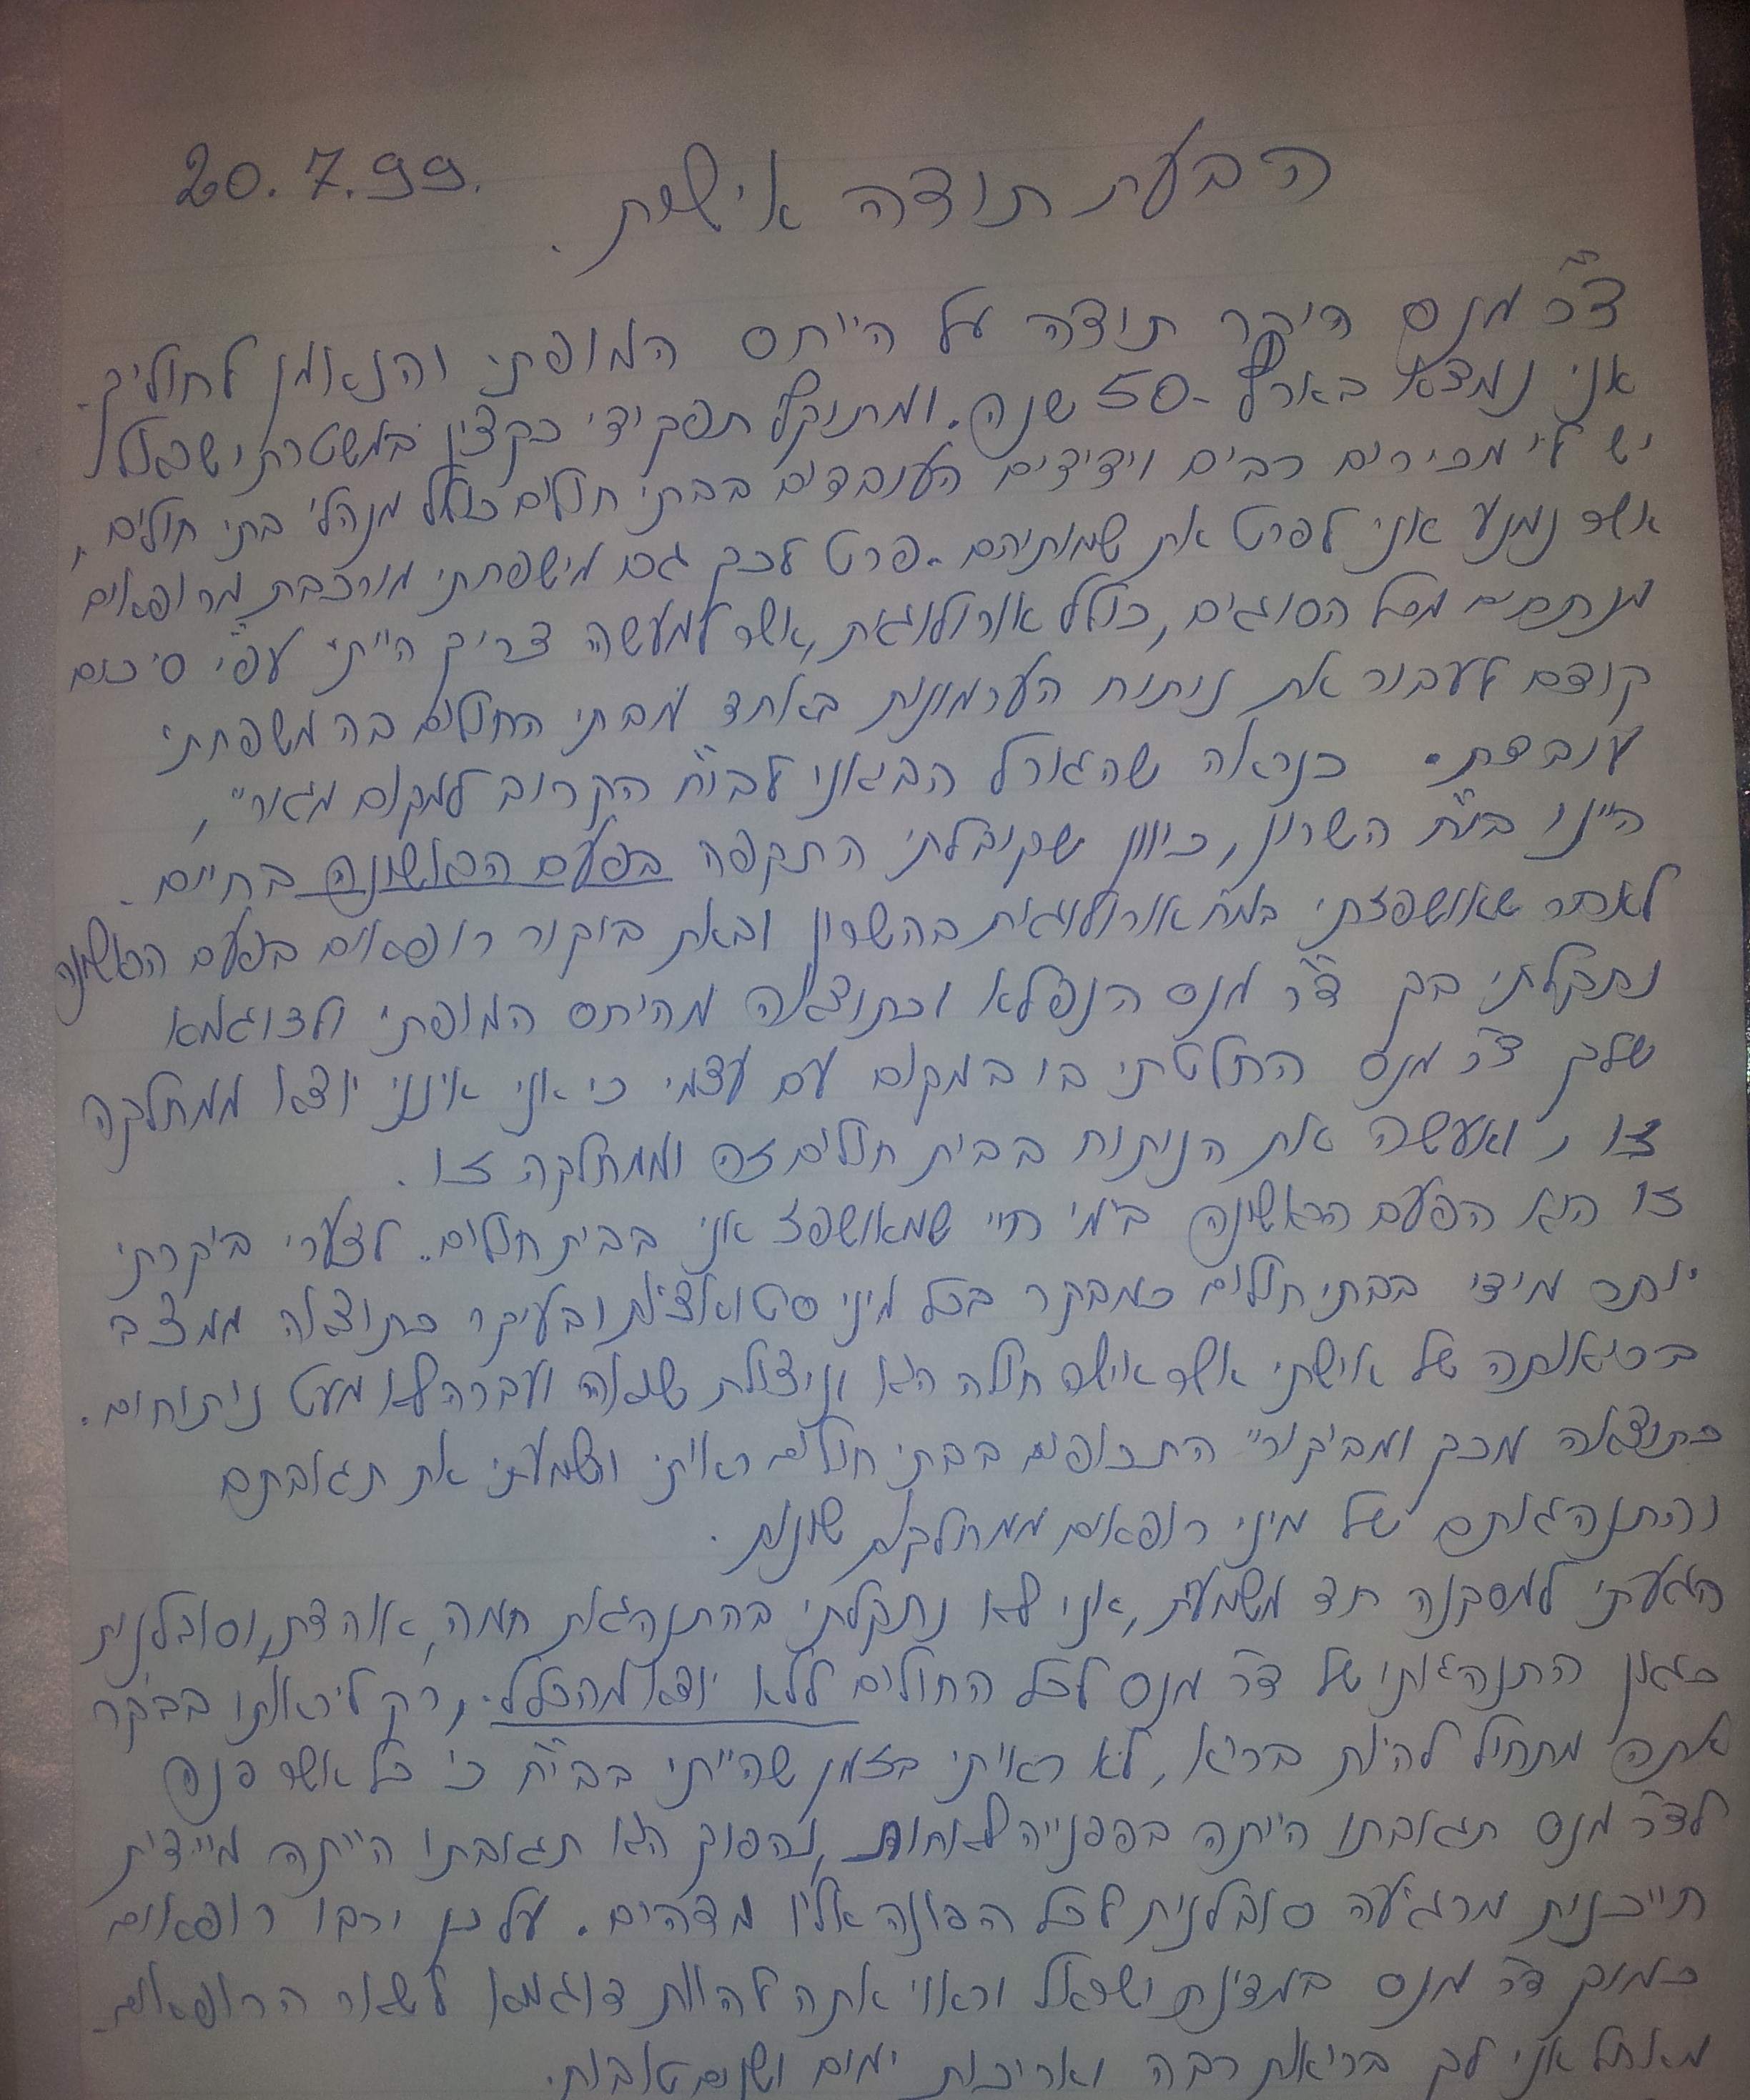 הבעת תודה אישית. 20.7.99.
ד"ר מנס היקר תודה על היחס המופתי והנאמן לחולים.
אני נמצא בארץ כ-50 שנה. ומתוקף תפקידי כקצין במשטרת ישראל
יש לי מכירים רבים וידידים העובדים בבתי חולים כולל מנהלי בתי חולים,
אשר נמנע אני לפרט את שמותיהם. פרט לכך גם מישפחתי מורכבת מרופאים
מנתחים מכל הסוגים, כולל אורולוגית, אשר למעשה צריך הייתי עפ"י סיכום
קודם לעבור את ניתוח הערמונית באחד מבתי החולים בה משפחתי
עובדת. כנראה שהגורל הביאני לביה"ח הקרוב למקום מגורי,
היינו בי"ח השרון, כיוון שקיבלתי התקפה בפעם הראשונה בחיים.
לאחר שאושפזתי במח' אורולוגית בהשרון ובאת ביקור רופאים בפעם הראשונה
נתקלתי בך ד"ר מנס הנפלא וכתוצאה מהיחס המופתי ולדוגמא
שלך ד"ר מנס החלטתי בו במקום עם עצמי כי אני אינני יוצא ממחלקה
זו, ואעשה את הניתוח בבית חולים זה וממחלקה זו.
זו היא הפעם הראשונה בימי חיי שמאושפז אני בבית חולים. לצערי ביקרתי
יותר מידי בבתי חולים כמבקר בכל מיני סיטואציות ובעיקר כתוצאה ממצב
בריאותה של אישתי אשר אישה חולה היא וניצולת שואה ועברה לא מעט ניתוחים.
כתוצאה מכך ומביקורי התכופים בבתי חולים ראיתי ושמעתי את תגובתם
והתנהגותם של מיני רופאים ממחלקות שונות.
הגעתי למסקנה חד משמעית, אני לא נתקלתי בהתנהגות חמה, אוהדת, וסובלנית
כגון התנהגותו של ד"ר מנס לכל החולים ללא יוצא מהכלל. רק ליראותו בבקר
אתה מתחיל להיות בריא, לא ראיתי בזמן שהייתי בביה"ח כי כל אשר פנה
לד"ר מנס תגובתו היתה בפנייה לאחות, נהפוך הוא תגובתו הייתה מיידית
חייכנית מרגיעה סובלנית לכל הפונה אליו מדהים. על כן ירבו רופאים
כמוך ד"ר מנס במדינת ישראל וראוי אתה להיות דוגמא לשאר הרופאים.
מאחל אני לך בריאות רבה ואריכות ימים ושנים טובות.